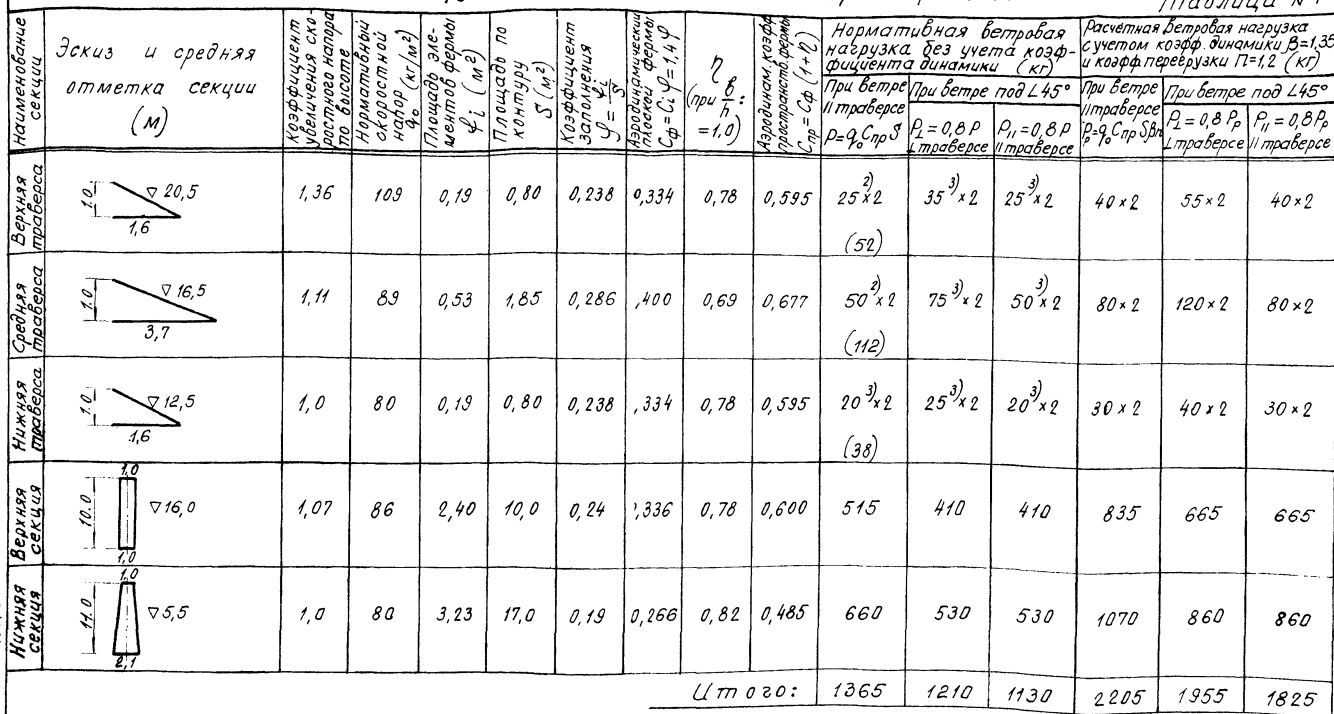 Таблица №1
Наименование секции
Эскиз и средняя отметка секции (м)
Коэффициент увеличения скоростного напора по высоте
Нормативный скоростной напор q₀ (кг/м²)
Площадь элементов фермы φi (м²)
Площадь по контуру S (м²)
Коэффициент заполнения φ = φi/S
Аэродинамический плоской фермы Cφ = Ci φ = 1,4 φ
η (при в/h := 1,0)
Аэродинам. коэфф. пространств. фермы Cпр = Cφ (1+η)
Нормативная ветровая нагрузка без учета коэффициента динамики (кг)
При ветре II траверсе P = q₀ Cпр S
При ветре под ∠45°
P⊥ = 0,8 P ⊥ траверсе
P׀׀ = 0,8 P ׀׀ траверсе
Расчетная ветровая нагрузка с учетом коэфф. динамики β=1,35 и коэфф. перегрузки П=1,2 (кг)
При ветре II траверсе Pр = q₀ Cпр Sβn
При ветре под ∠45°
P⊥ = 0,8 Pр ⊥ траверсе
P׀׀ = 0,8 Pр ׀׀ траверсе
Верхняя траверса
1.0 ▽ 20,5 1,6
1,36 109 0,19 0,80 0,238 0,334 0,78 0,595 25²⁾×2 (52) 35³⁾×2 25³⁾×2 40×2 55×2 40×2
Средняя траверса
1.0 ▽ 16,5 3,7
1,11 89 0,53 1,85 0,286 ,400 0,69 0,677 50²⁾×2 (112) 75³⁾×2 50³⁾×2 80×2 120×2 80×2
Нижняя траверса
1.0 ▽ 12,5 1,6
1,0 80 0,19 0,80 0,238 ,334 0,78 0,595 20³⁾×2 (38) 25³⁾×2 20³⁾×2 30×2 40×2 30×2
Верхняя секция
1,0 10.0 ▽ 16,0 1,0
1,07 86 2,40 10,0 0,24 ,336 0,78 0,600 515 410 410 835 665 665
Нижняя секция
1,0 11.0 ▽ 5,5 2,1
1,0 80 3,23 17,0 0,19 0,266 0,82 0,485 660 530 530 1070 860 860
Итого: 1365 1210 1130 2205 1955 1825